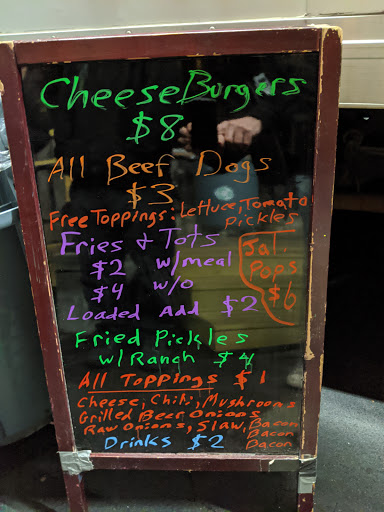 Cheese Burgers
$8
All Beef Dogs
$3
Free Toppings: Lettuce, Tomato
Pickles
Fries & Tots
$2 w/meal
$4 w/o
Loaded Add $2
Jal.
Pops
$6
Fried Pickles
w/Ranch $4
All Toppings $1
Cheese, Chili, Mushrooms
Grilled Beer Onions
Raw Onions, Slaw, Bacon
Bacon
Bacon
Drinks $2